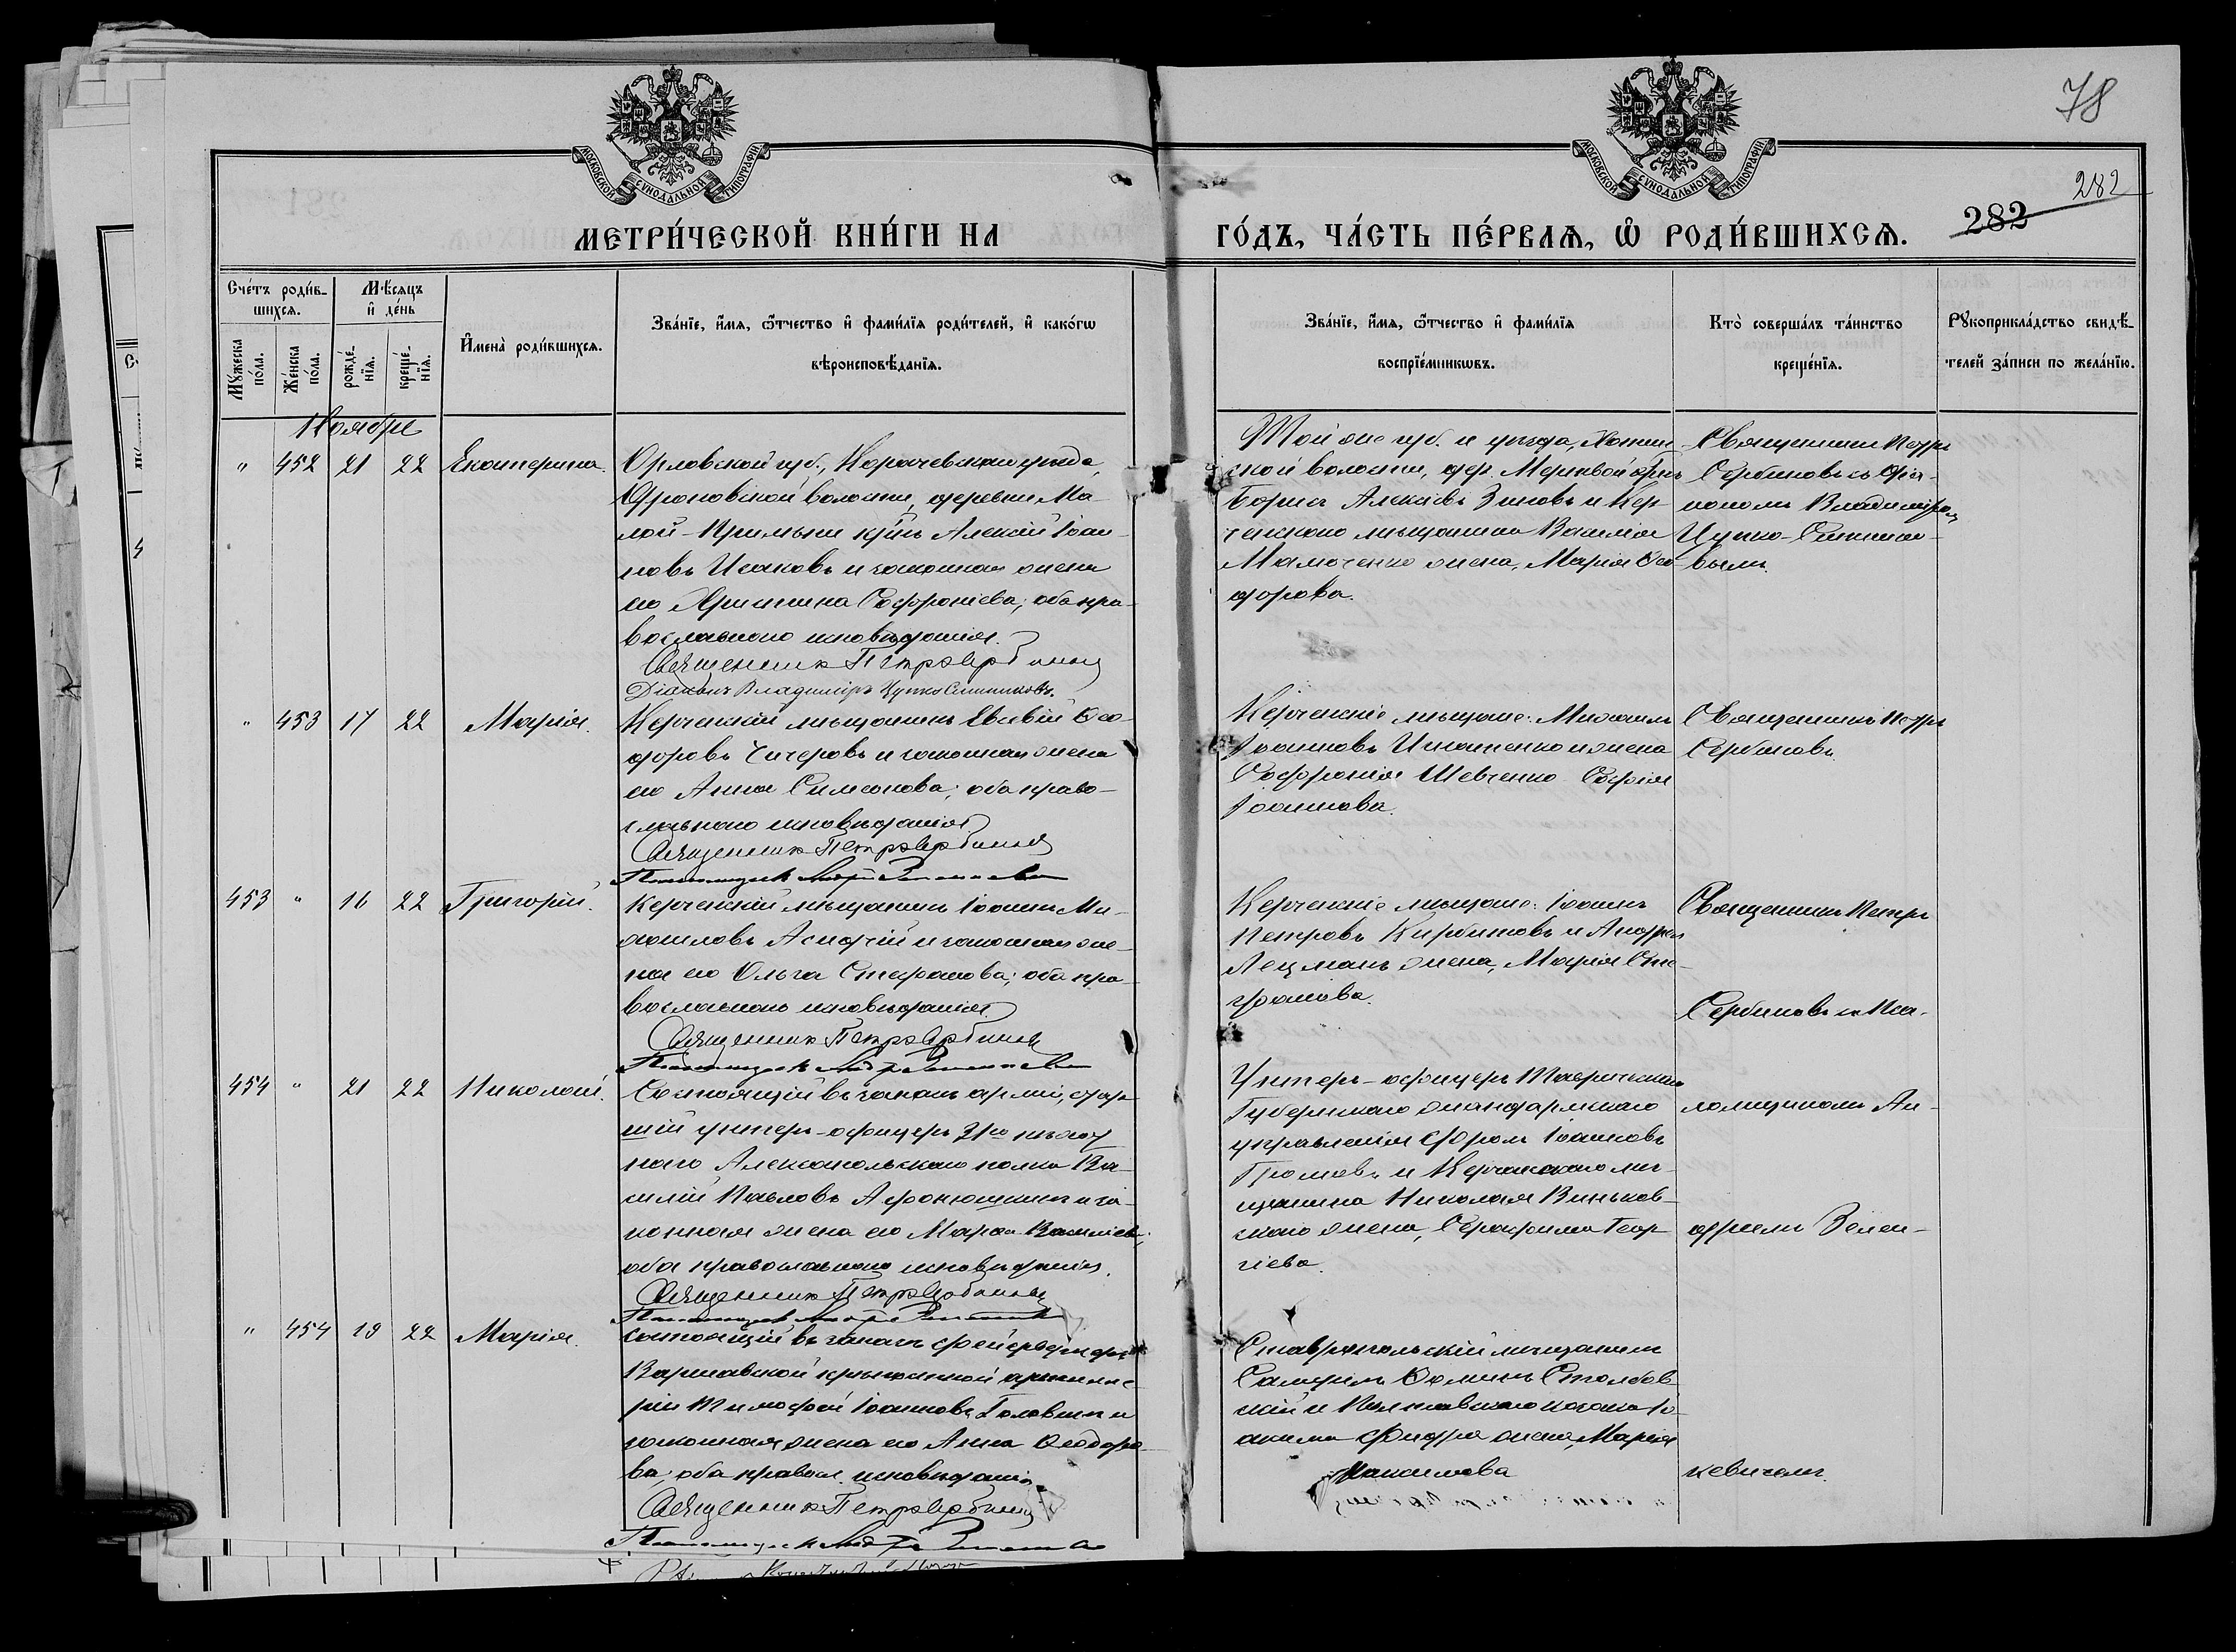 78
МОСКОВСКОЙ СУНОДАЛЬНОЙ ТИПОГРАФІИ
МОСКОВСКОЙ СУНОДАЛЬНОЙ ТИПОГРАФІИ
282
МЕТРИ́ЧЕСКОЙ КНИ́ГИ НА
ГО́ДЪ, ЧА́СТЬ ПЕ́РВАѦ, Ѡ҆ РОДИ́ВШИХСѦ.
282
Сче́тъ роди́в-
шихсѧ.
Мѣ́сѧцъ
и҆ де́нь
Мꙋ́жеска по́ла.
Же́нска по́ла.
рожде́-нїѧ.
креще́-нїѧ.
И҆мена̀ роди́вшихсѧ.
Зва́нїе, и҆́мѧ, ѻ҆́тчество и҆ фами́лїѧ роди́телей, и҆ како́гѡ
вѣроисповѣ́данїѧ.
Зва́нїе, и҆́мѧ, ѻ҆́тчество и҆ фами́лїѧ
воспрїе́мникѡвъ.
Кто̀ соверша́лъ та́инство
креще́нїѧ.
Рꙋкоприкла́дство свидѣ́-
телей за́писи по жела́нїю.
Ноябрь
" 452 21 22 Екатерина.
Орловской губ., Карачевскаго уѣзда,
волости, деревни Ма-
лой- кр-нъ Алексій Іоан-
новъ Исаковъ и законная жена
его Софроніева; оба пра-
вославнаго исповѣданія.
Священникъ Петръ Сербиновъ
Діаконъ Владиміръ Цупко-Ситниковъ.
Той же губ. и уѣзда,
ской волости, дер.
Борисъ Алексіевъ Зиновъ и Кер-
ченскаго мѣщанина Василія
жена, Марія Ѳео-
дорова.
Священникъ Петръ
Сербиновъ съ діа-
кономъ Владиміромъ
Цупко-Ситнико-
вымъ.
" 453 17 22 Марія.
Керченскій мѣщанинъ Евсевій Ѳео-
доровъ Чичеровъ и законная жена
его Анна Симеонова; оба право-
славнаго исповѣданія
Священникъ Петръ Сербиновъ
Псаломщикъ Андрей
Керченскіе мѣщане: Михаилъ
Іоанновъ Игнатенко и жена
Софронія Шевченко Софія
Іоаннова.
Священникъ Петръ
Сербиновъ
453 " 16 22 Григорій.
Керченскій мѣщанинъ Іоаннъ Ми-
хаиловъ и законная же-
на его Ольга Стефанова; оба пра-
вославнаго исповѣданія.
Священникъ Петръ Сербиновъ
Псаломщикъ Андрей
Керченскіе мѣщане: Іоаннъ
Петровъ Курбитовъ и Андрея
Лецманъ жена, Марія Сте-
фанова.
Священникъ Петръ
Сербиновъ съ пса-
454 " 21 22 Николай.
Состоящій въ запасѣ арміи, стар-
шій унтеръ-офицеръ 31го пѣхот-
наго Алексопольскаго полка Ва-
силій Павловъ Афонюшкинъ и за-
конная жена его Марѳа Василіева;
оба православнаго исповѣданія.
Священникъ Петръ Сербиновъ
Псаломщикъ Андрей
Унтеръ-офицеръ Таврическаго
Губернскаго жандармскаго
управленія Іоанновъ
Громовъ и Керченскаго мѣ-
щанина Николая Виньков-
скаго жена, Серафима Геор-
гіева.
ломщикомъ Ан-
дреемъ Зелен-
" 454 19 22 Марія.
состоящій въ запасѣ фейерверкеръ
Варшавской крѣпостной артилле-
ріи Тимоѳей Іоанновъ Головинъ и
законная жена его Анна Ѳеодоро-
ва; оба правосл. исповѣданія.
Священникъ Петръ Сербиновъ
Псаломщикъ Андрей
Ставропольскій мѣщанинъ
Самуилъ Ѳоминъ Столбов-
скій и Іо-
акима жена, Марія
Максимова
кевичемъ.